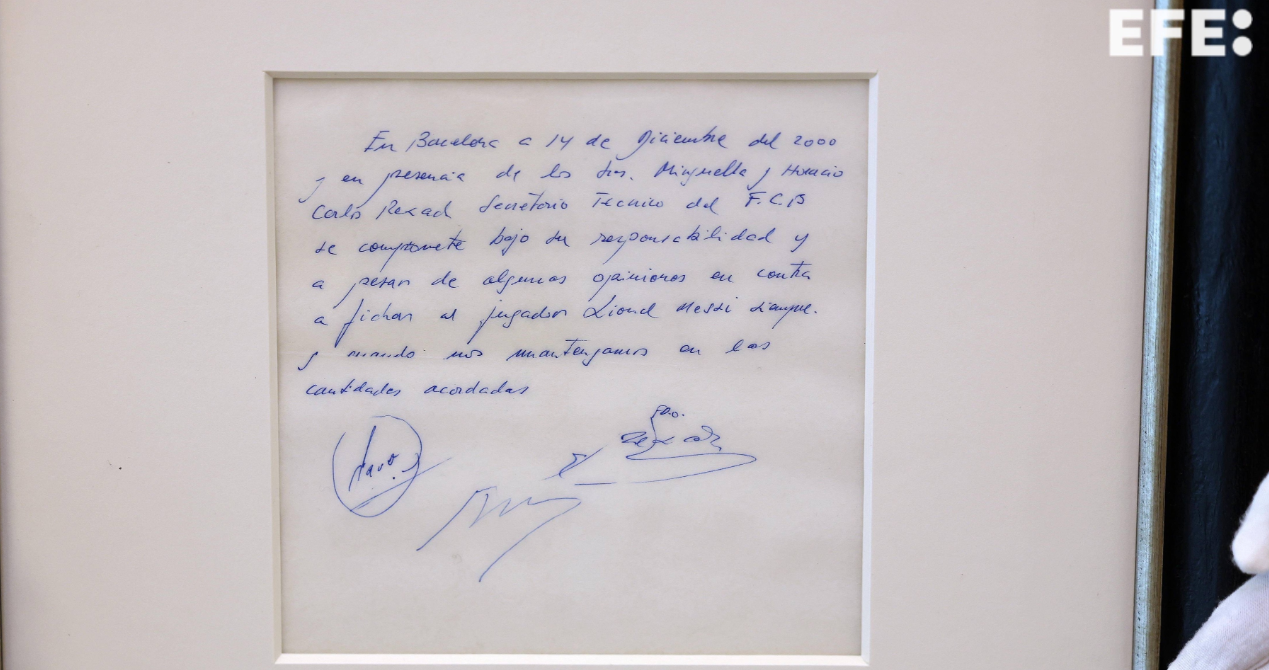 EFE:
En Barcelona a 14 de Diciembre del 2000
y en presencia de los Srs. Minguella y Horacio
Carlos Rexach Secretario Técnico del F.C.B
se compromete bajo su responsabilidad y
a pesar de algunas opiniones en contra
a fichar al jugador Lionel Messi siempre.
y cuando nos mantengamos en las
cantidades acordadas
Fdo.